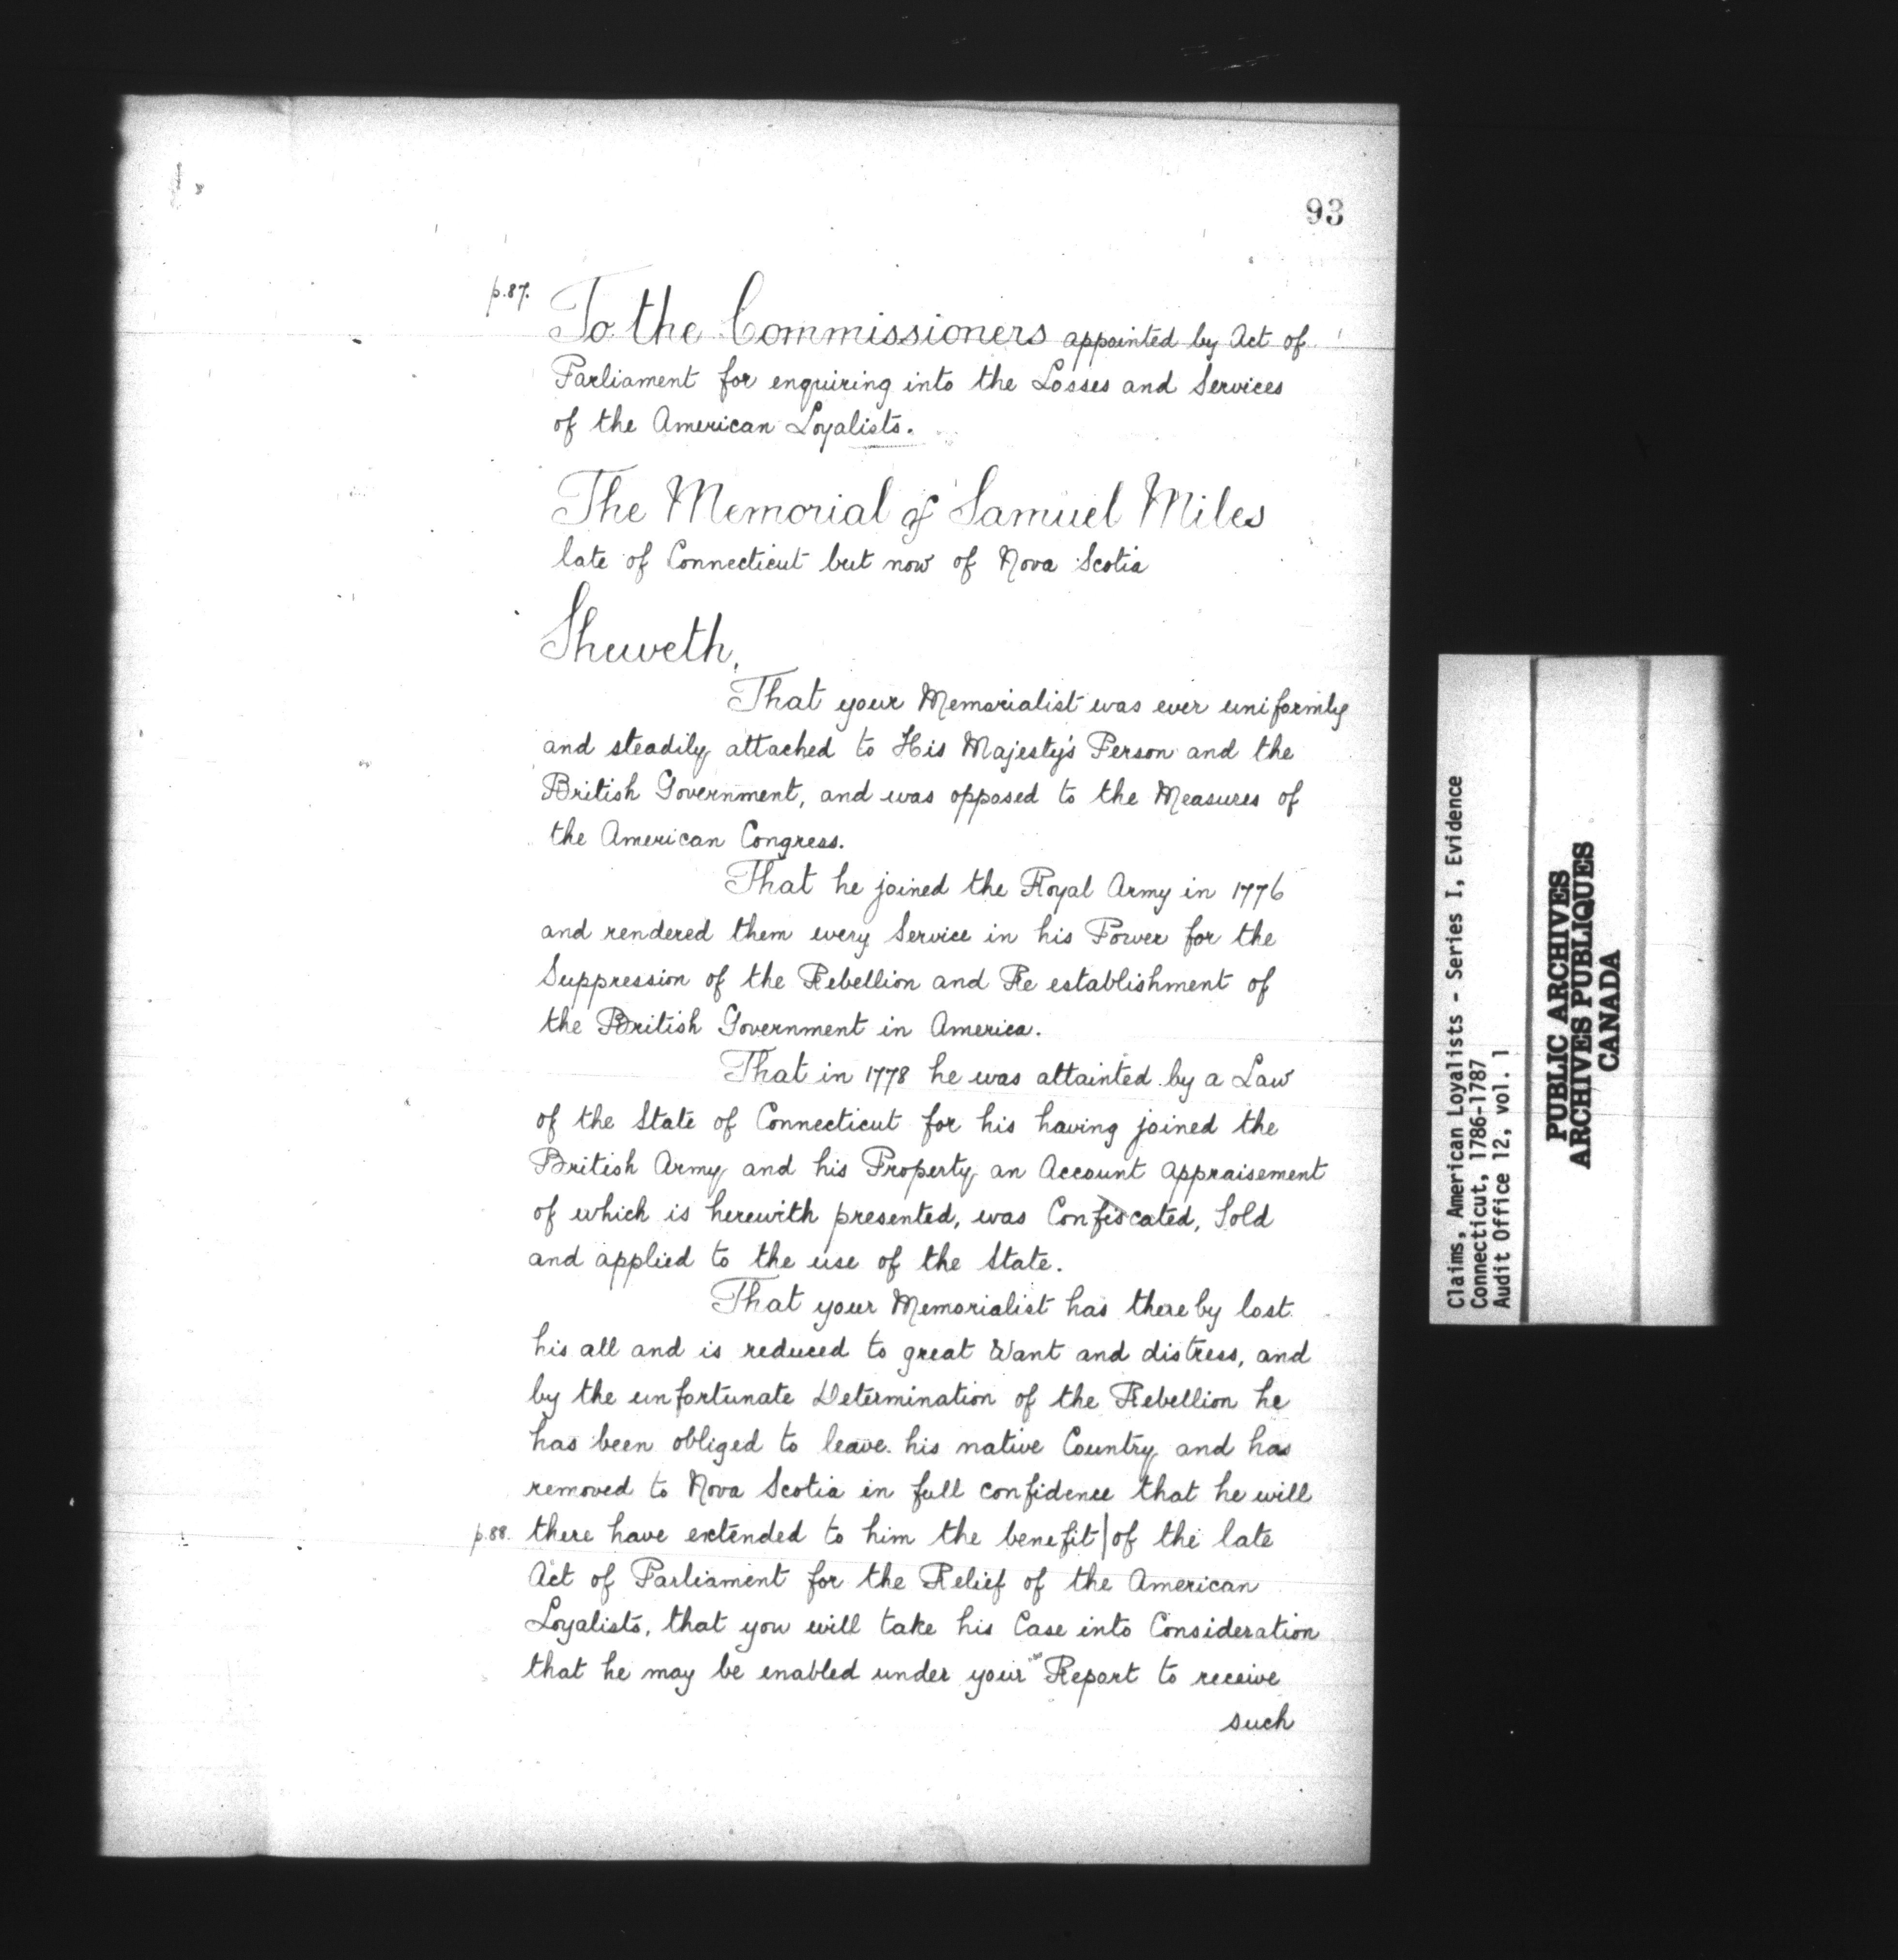 93
p.87.
To the Commissioners appointed by Act of
Parliament for enquiring into the Losses and Services
of the American Loyalists.
The Memorial of Samuel Miles
late of Connecticut but now of Nova Scotia
Sheweth,
That your Memorialist was ever uniformly
and steadily attached to His Majesty's Person and the
British Government, and was opposed to the Measures of
the American Congress.
That he joined the Royal Army in 1776
and rendered them every Service in his Power for the
Suppression of the Rebellion and Re establishment of
the British Government in America.
That in 1778 he was attainted by a Law
of the State of Connecticut for his having joined the
British Army and his Property an Account appraisement
of which is herewith presented, was Confiscated, Sold
and applied to the use of the State.
That your Memorialist has thereby lost
his all and is reduced to great Want and distress, and
by the unfortunate Determination of the Rebellion he
has been obliged to leave his native Country and has
removed to Nova Scotia in full confidence that he will
p.88. there have extended to him the benefit | of the late
Act of Parliament for the Relief of the American
Loyalists, that you will take his Case into Consideration
that he may be enabled under your Report to receive
such
Claims, American Loyalists - Series I, Evidence
Connecticut, 1786-1787
Audit Office 12, vol. 1
PUBLIC ARCHIVES
ARCHIVES PUBLIQUES
CANADA